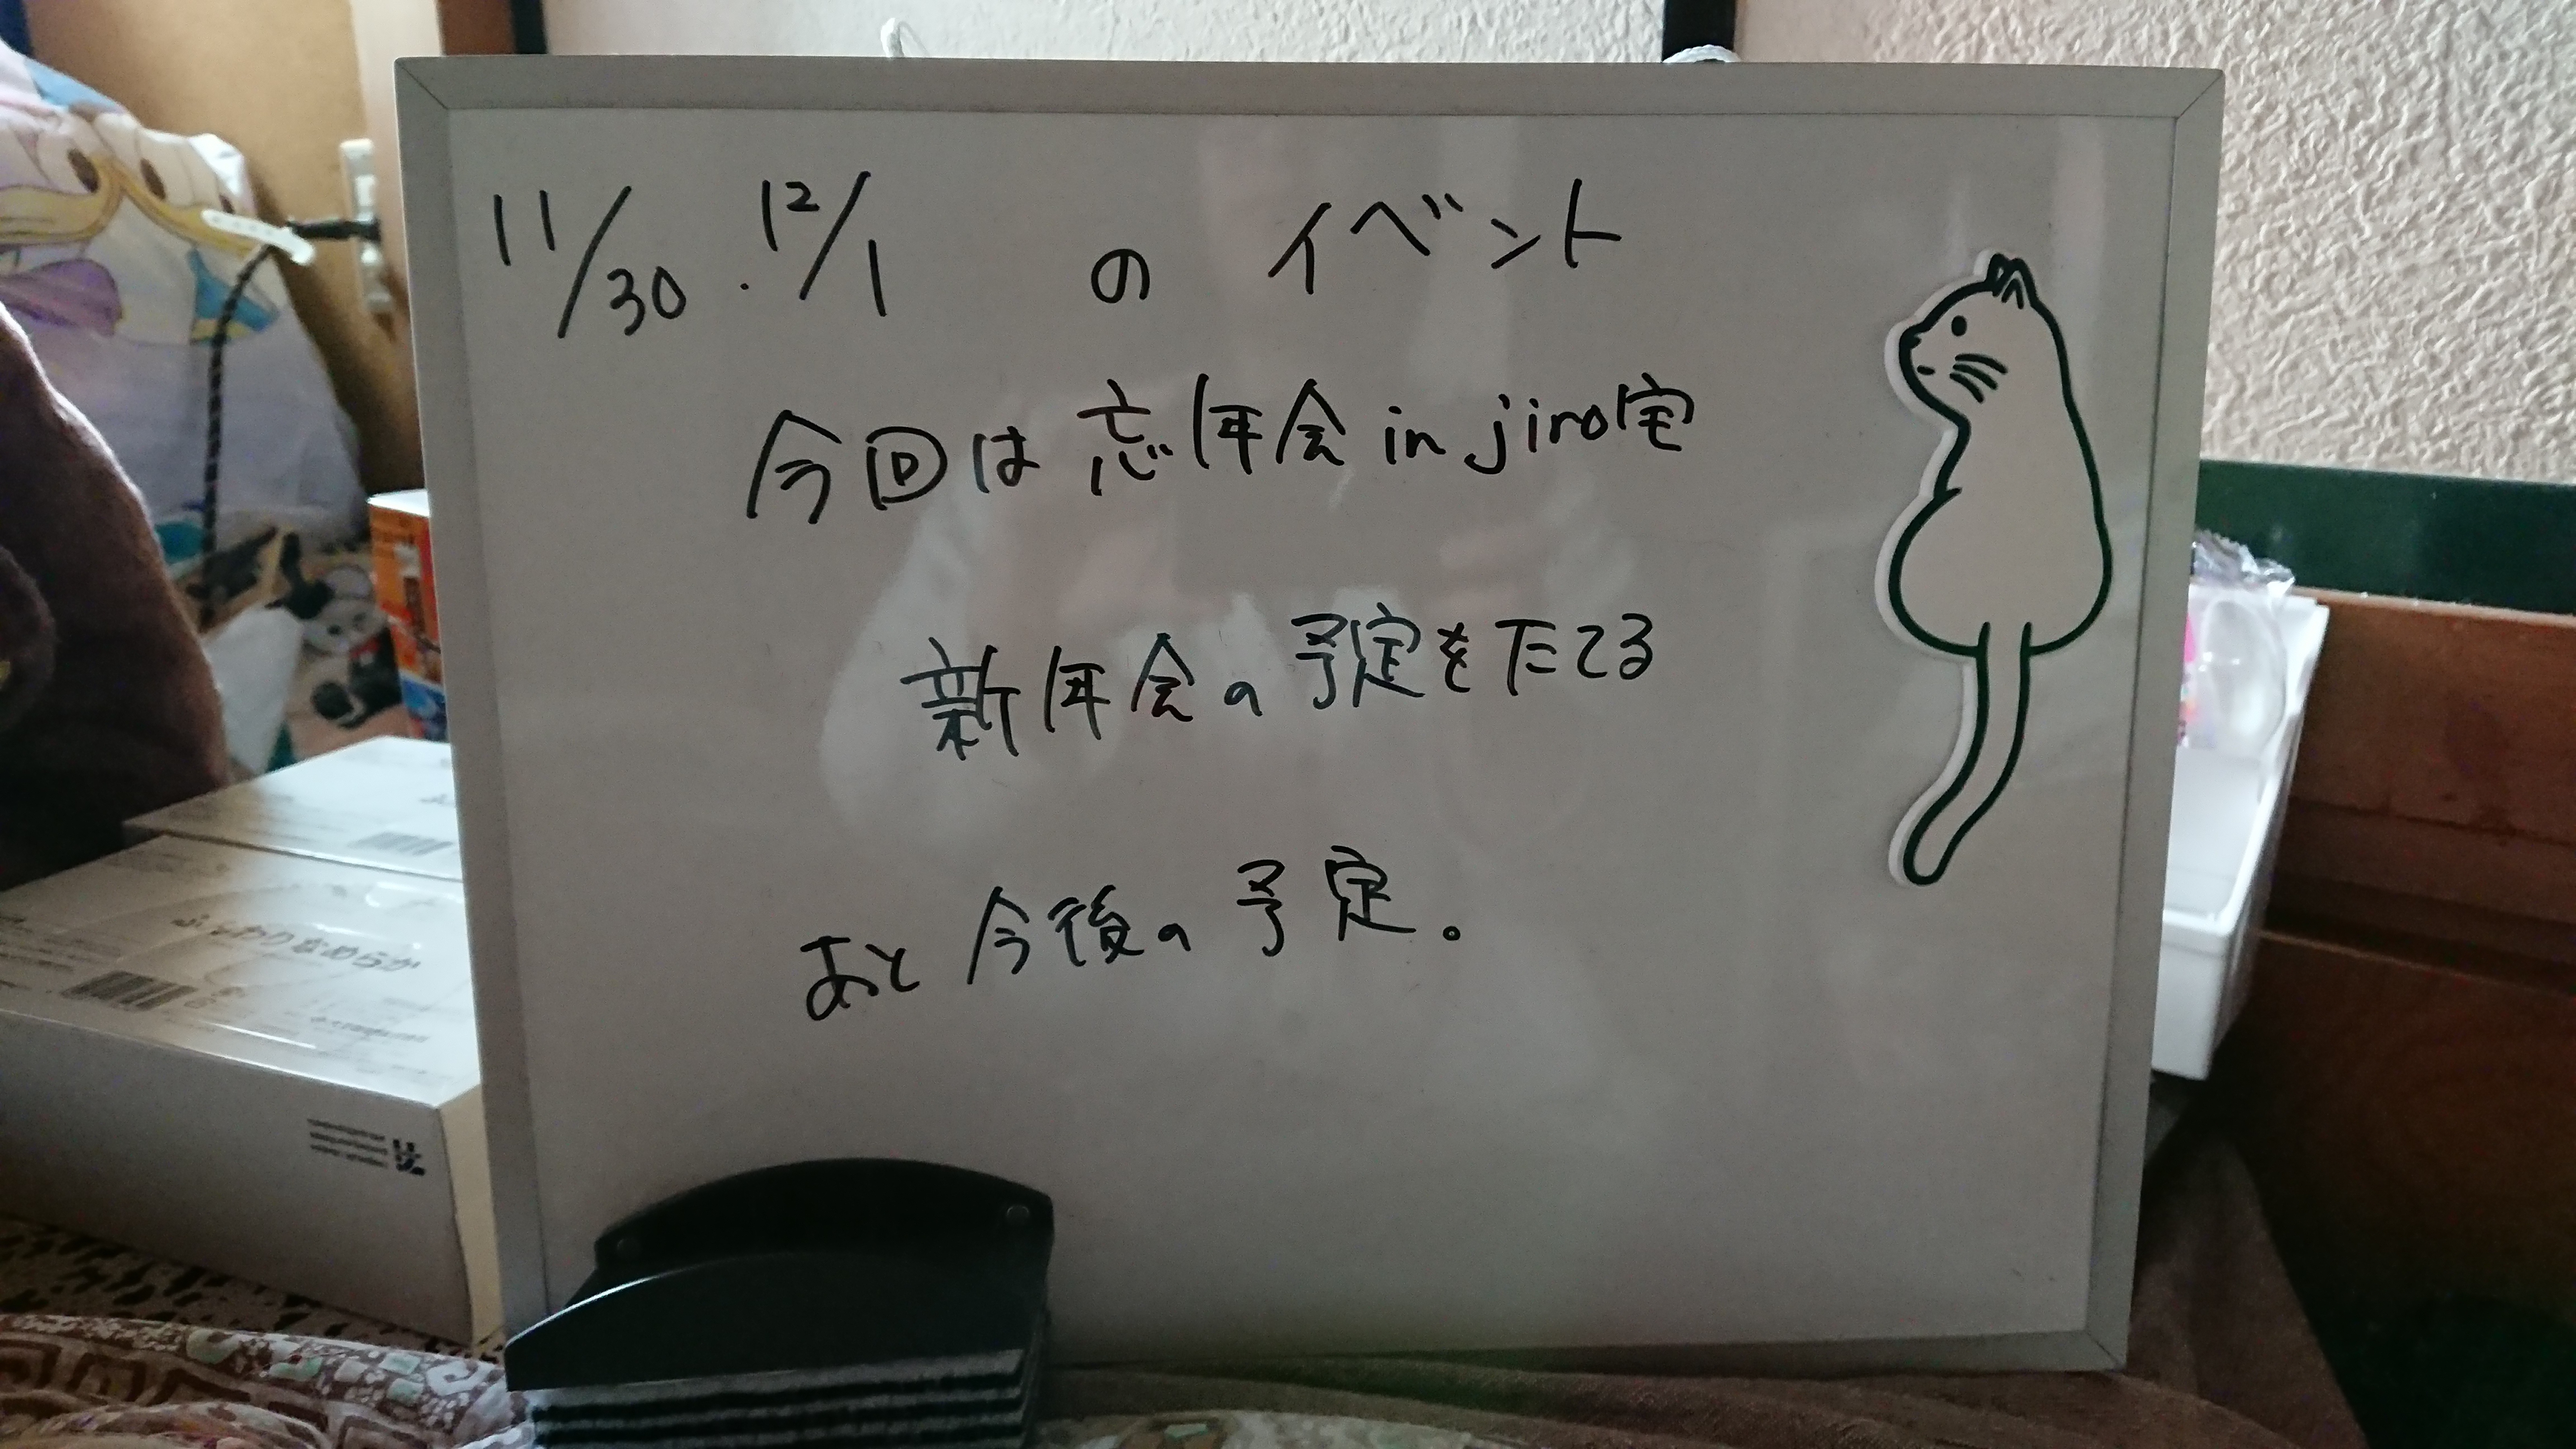 11/30・12/1 の イベント
今回は忘年会 in jiro宅
新年会の予定をたてる
あと今後の予定。
なめらか